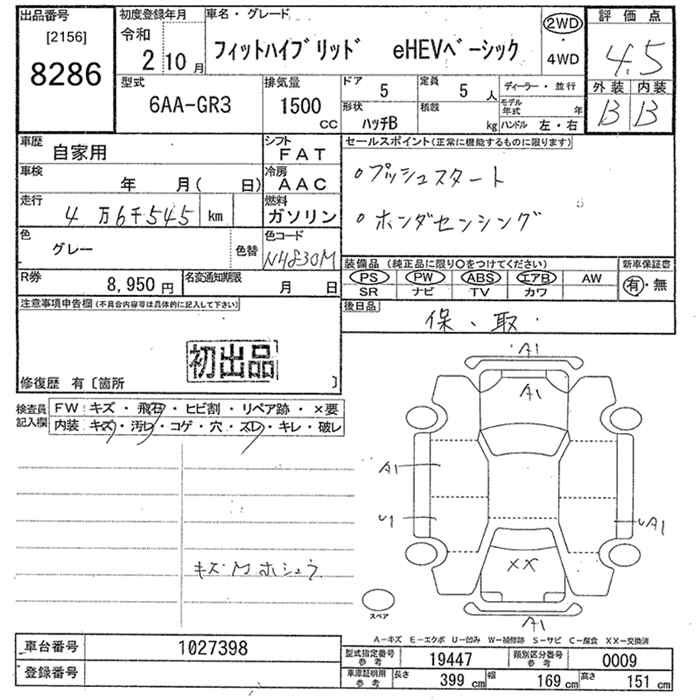 出品番号
[2156]
8286
初度登録年月
令和
2年 10月
車名・グレード
フィットハイブリッド eHEVベーシック
2WD
・
4WD
評価点
4.5
外装 内装
B B
型式
6AA-GR3
排気量
1500
CC
ドア 5
定員 5 人
形状 ハッチB
積載 kg
ディーラー・並行
モデル年式 年
ハンドル 左・右
車歴
自家用
シフト
FAT
車検
年 月( 日)
冷房
AAC
走行
4万6千545 km
燃料
ガソリン
色
グレー
色替
色コード
NH830M
R券
8,950円
名変通知期限
月 日
セールスポイント(正常に機能するものに限ります)
。プッシュスタート
。ホンダセンシング
装備品(純正品に限り○をつけてください)
PS PW ABS エアB AW
SR ナビ TV カワ
新車保証書
有・無
後日品
保、取
注意事項申告欄(不具合内容等は具体的に記入して下さい)
初出品
修復歴 有〔箇所 〕
検査員記入欄
FW:キズ・飛石・ヒビ割・リペア跡・×要
内装:キズ・汚レ・コゲ・穴・ズレ・キレ・破レ
A1
A1
A1
U1
UA1
XX
A1
キズ M ホシュウ
スペア
A-キズ E-エクボ U-凹み W-補修跡 S-サビ C-腐食 XX-交換済
車台番号
1027398
登録番号
型式指定番号 参考 19447
類別区分番号 参考 0009
車庫証明用 参考
長さ 399 cm
幅 169 cm
高さ 151 cm